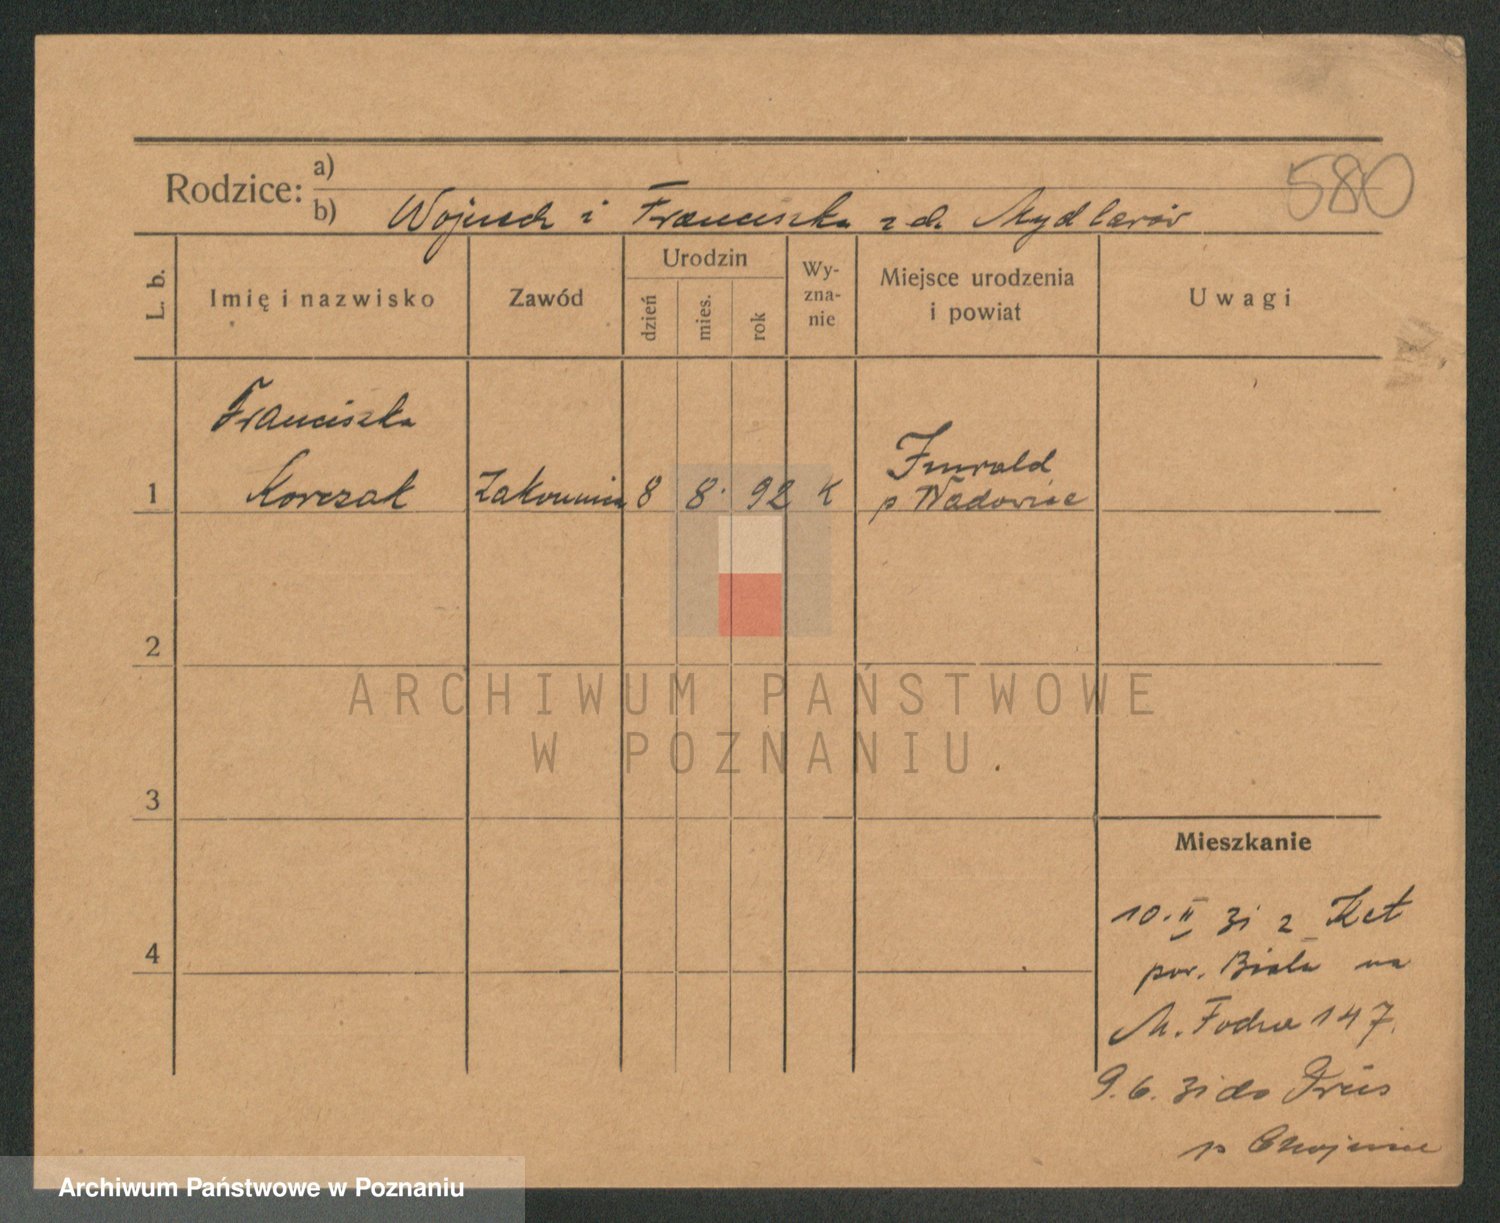 580
Rodzice: a)
b) Wojciech i Franciszka z d. Mydlarów
L. b. Imię i nazwisko Zawód Urodzin dzień mies. rok Wy-zna-nie Miejsce urodzenia i powiat Uwagi
Franciszka
1 Korczak Zakonnica 8 8. 92 K Inwald
p Wadowice
2
ARCHIWUM PAŃSTWOWE
W POZNANIU
3
Mieszkanie
10. II z Kęt
4
pow. Biała na
M. Focha 147.
9. 6. do
p Chojnice
Archiwum Państwowe w Poznaniu